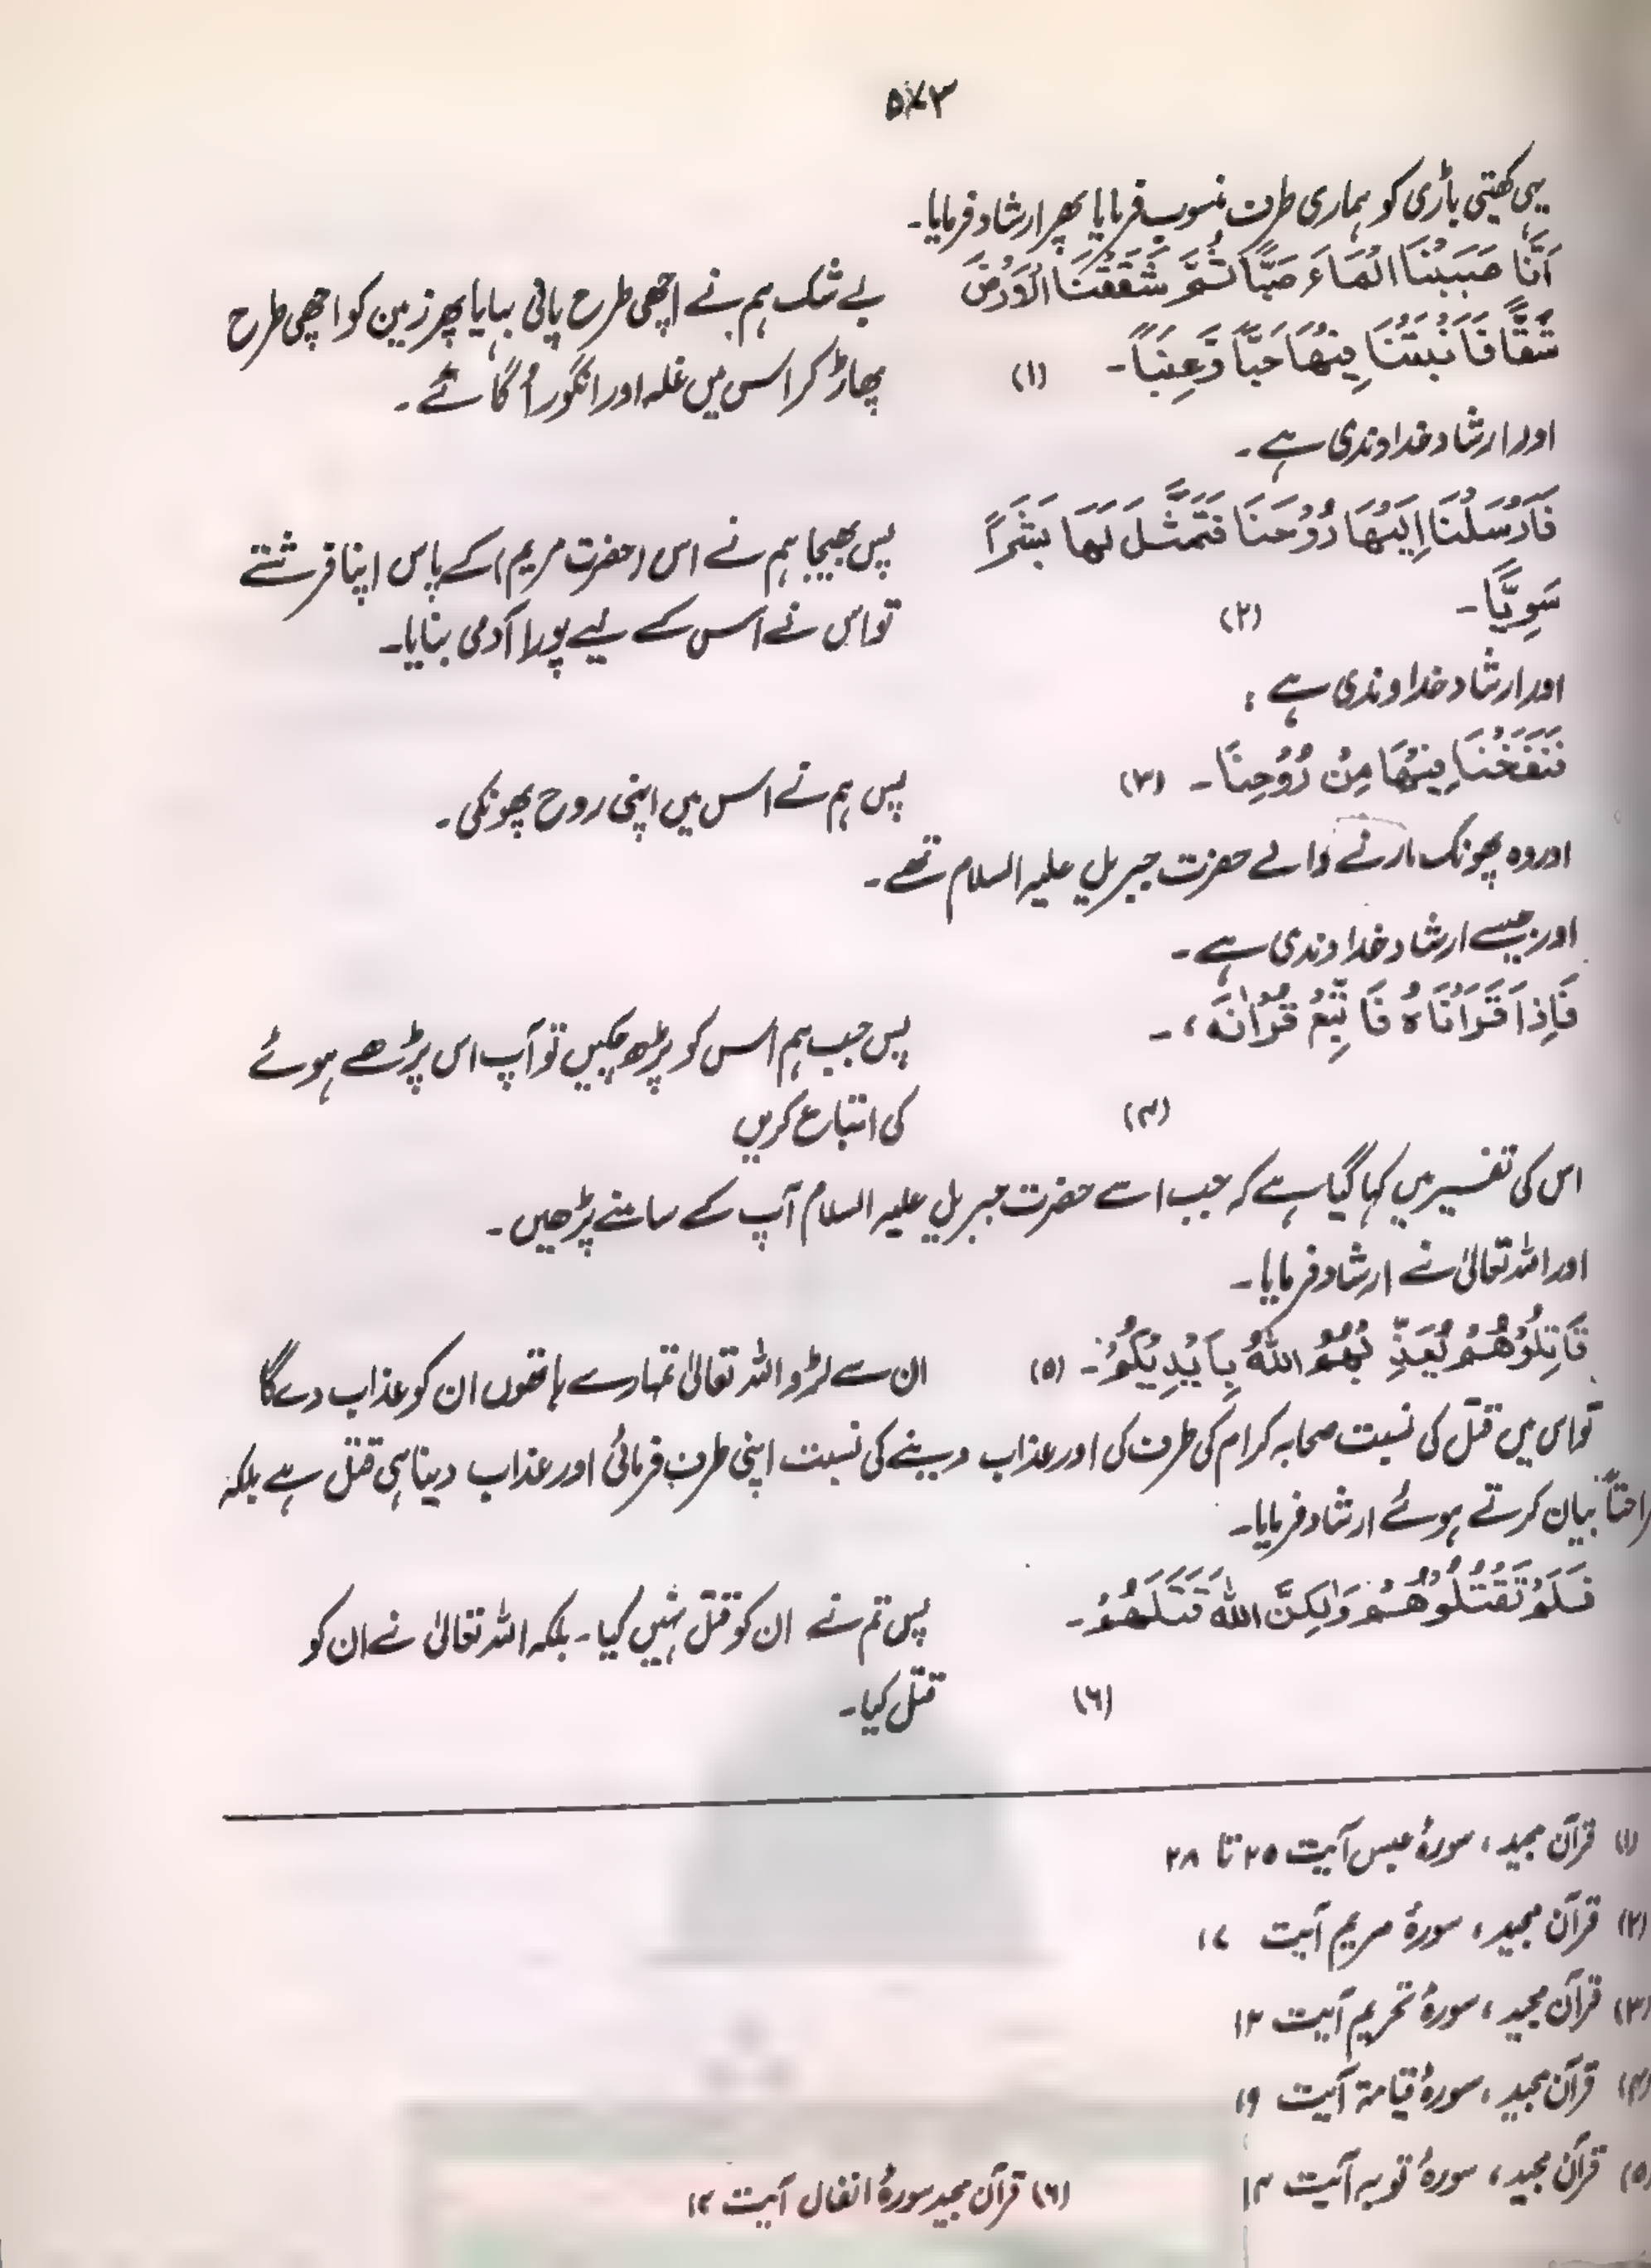 ۵۷۳
یہی کھیتی باڑی کو ہماری طرف منسوب فرمایا پھر ارشاد فرمایا۔
اَنَّا صَبَبْنَا الْمَاءَ صَبًّا ثُمَّ شَقَقْنَا الْاَرْضَ
شَقًّا فَاَنْبَتْنَا فِيْهَا حَبًّا وَّعِنَبًا۔ (۱)
بے شک ہم نے اچھی طرح پانی بہایا پھر زمین کو اچھی طرح
پھاڑ کر اس میں غلہ اور انگور اُگائے۔
اور ارشاد خداوندی ہے۔
فَاَرْسَلْنَا اِلَيْهَا رُوْحَنَا فَتَمَثَّلَ لَهَا بَشَرًا
سَوِيًّا۔ (۲)
پس بھیجا ہم نے اس (حضرت مریم) کے پاس اپنا فرشتے
تو اس نے اس کے لیے پورا آدمی بنایا۔
اور ارشاد خداوندی ہے :
فَنَفَخْنَا فِيْهَا مِنْ رُوْحِنَا۔ (۳)
پس ہم نے اس میں اپنی روح پھونکی۔
اور وہ پھونک مارنے والے حضرت جبریل علیہ السلام تھے۔
اور جیسے ارشاد خداوندی ہے۔
فَاِذَا قَرَاْنَاهُ فَاتَّبِعْ قُرْاٰنَهٗ ،۔
(۴)
پس جب ہم اس کو پڑھ چکیں تو آپ اس پڑھے ہوئے
کی اتباع کریں
اس کی تفسیر میں کہا گیا ہے کہ جب اسے حضرت جبریل علیہ السلام آپ کے سامنے پڑھیں۔
اور اللہ تعالیٰ نے ارشاد فرمایا۔
قَاتِلُوْهُمْ يُعَذِّبْهُمُ اللّٰهُ بِاَيْدِيْكُمْ۔ (۵)
ان سے لڑو اللہ تعالیٰ تمہارے ہاتھوں ان کو عذاب دے گا
تو اس میں قتل کی نسبت صحابہ کرام کی طرف کی اور عذاب دینے کی نسبت اپنی طرف فرمائی اور عذاب دینا ہی قتل ہے بلکہ
راحتاً بیان کرتے ہوئے ارشاد فرمایا۔
فَلَمْ تَقْتُلُوْهُمْ وَلٰكِنَّ اللّٰهَ قَتَلَهُمْ۔
(۶)
پس تم نے ان کو قتل نہیں کیا۔ بلکہ اللہ تعالیٰ نے ان کو
قتل کیا۔
(۱) قرآن مجید ، سورۂ عبس آیت ۲۵ تا ۲۸
(۲) قرآن مجید ، سورۂ مریم آیت ۱۷
(۳) قرآن مجید ، سورۂ تحریم آیت ۱۲
(۴) قرآن مجید ، سورۂ قیامۃ آیت ۱۹
(۵) قرآن مجید ، سورۂ توبہ آیت ۱۴
(۶) قرآن مجید سورۂ انفال آیت